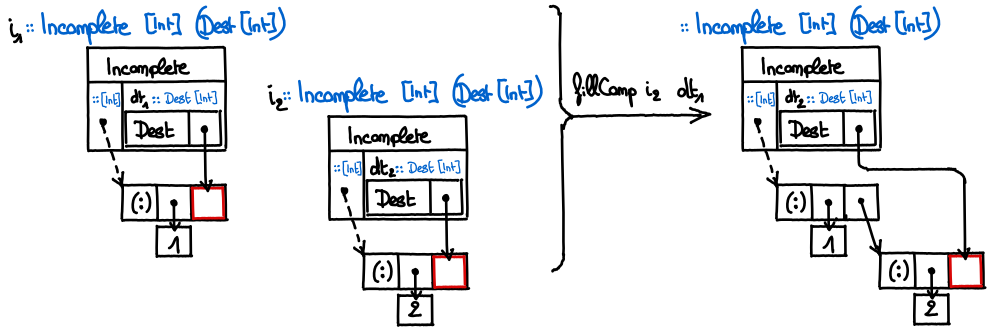 i₁ :: Incomplete [Int] (Dest [Int])
Incomplete
::[Int] dt₁ :: Dest [Int]
Dest
(:)
1
i₂ :: Incomplete [Int] (Dest [Int])
Incomplete
::[Int] dt₂ :: Dest [Int]
Dest
(:)
2
fillComp i₂ dt₁
:: Incomplete [Int] (Dest [Int])
Incomplete
::[Int] dt₂ :: Dest [Int]
Dest
(:)
1
(:)
2